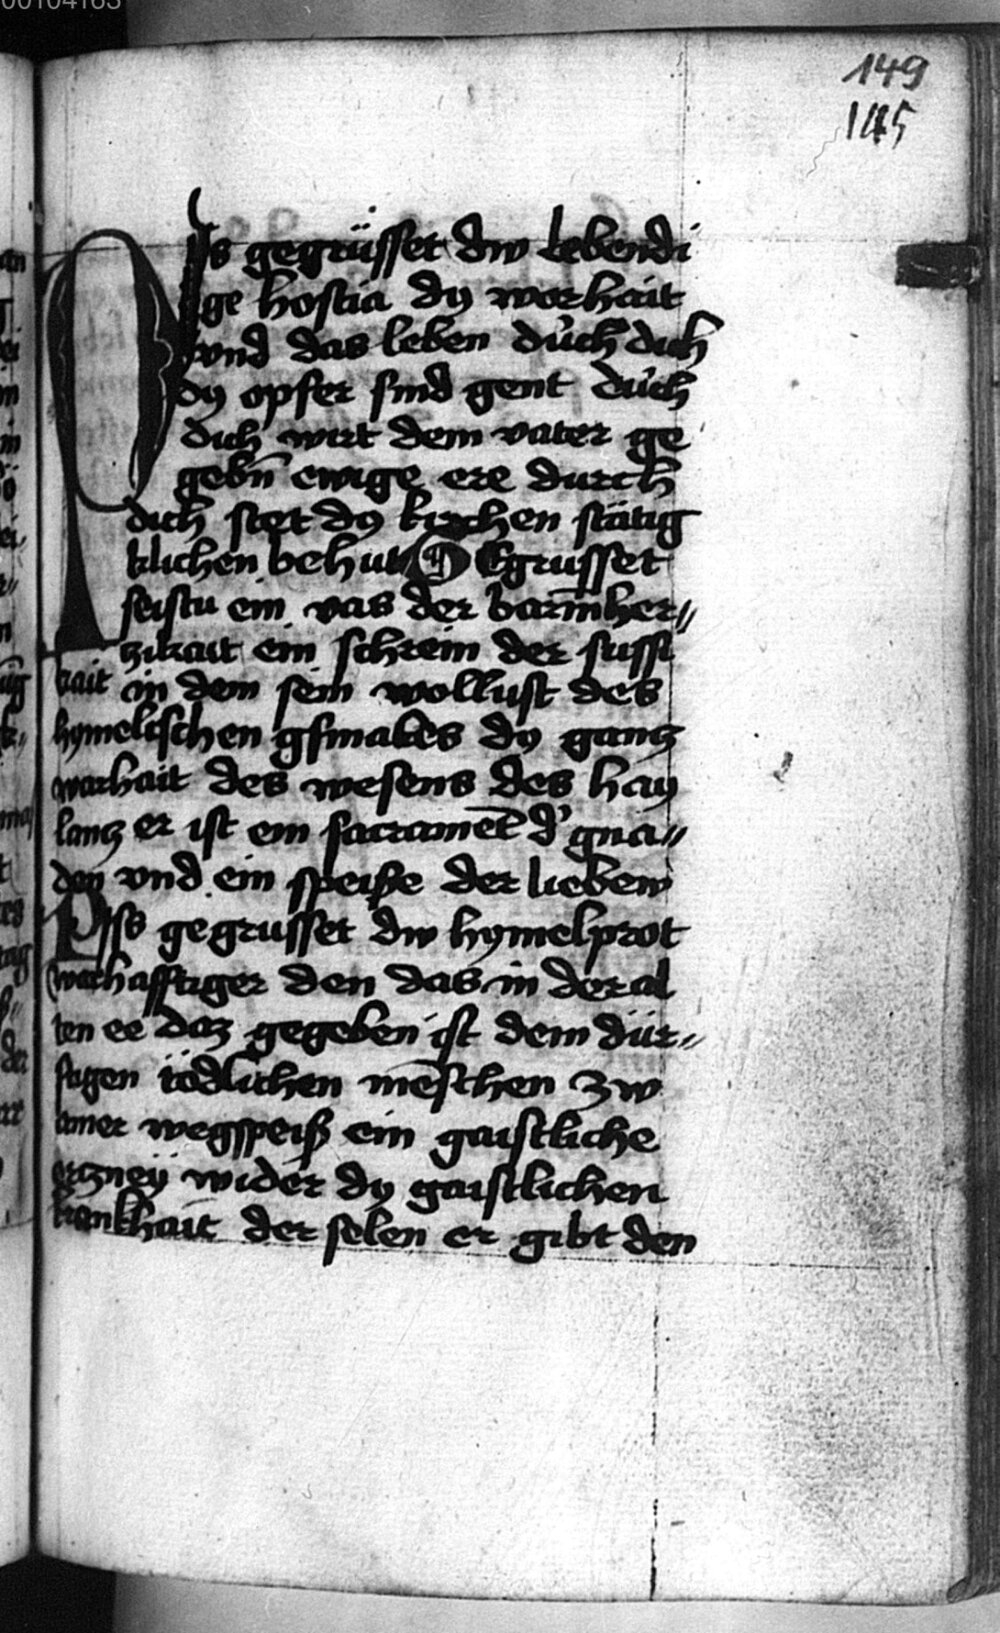 00104163
149
145
PIs gegrüsset dw lebendi
ge hostia dy worhait
vnd das leben dúch dich
dy opfer sind gent dúch
dich wirt dem vater ge
gebn̄ ewige ere durch
dich stet dy kirchen stätig
klichen behut Gegrusset
seistu ein vas der barm̄her〃
zikait ein schrein der sussi
kait in dem sein wollust des
hymelischen gsmakes dy gancz
warhait des wesens des hay
lancz er ist ein sacramēt d' gna〃
den vnd ein speiße der lieben
Piss gegrusset dw hymelprot
warhafftiger den das in der al
ten ee daz gegeben ist dem dür〃
ftigen tödlichen mēschen zw
ainer wegspeiß ein gaistliche
erczney wider dy gaistlichen
krankhait der selen er gibt den